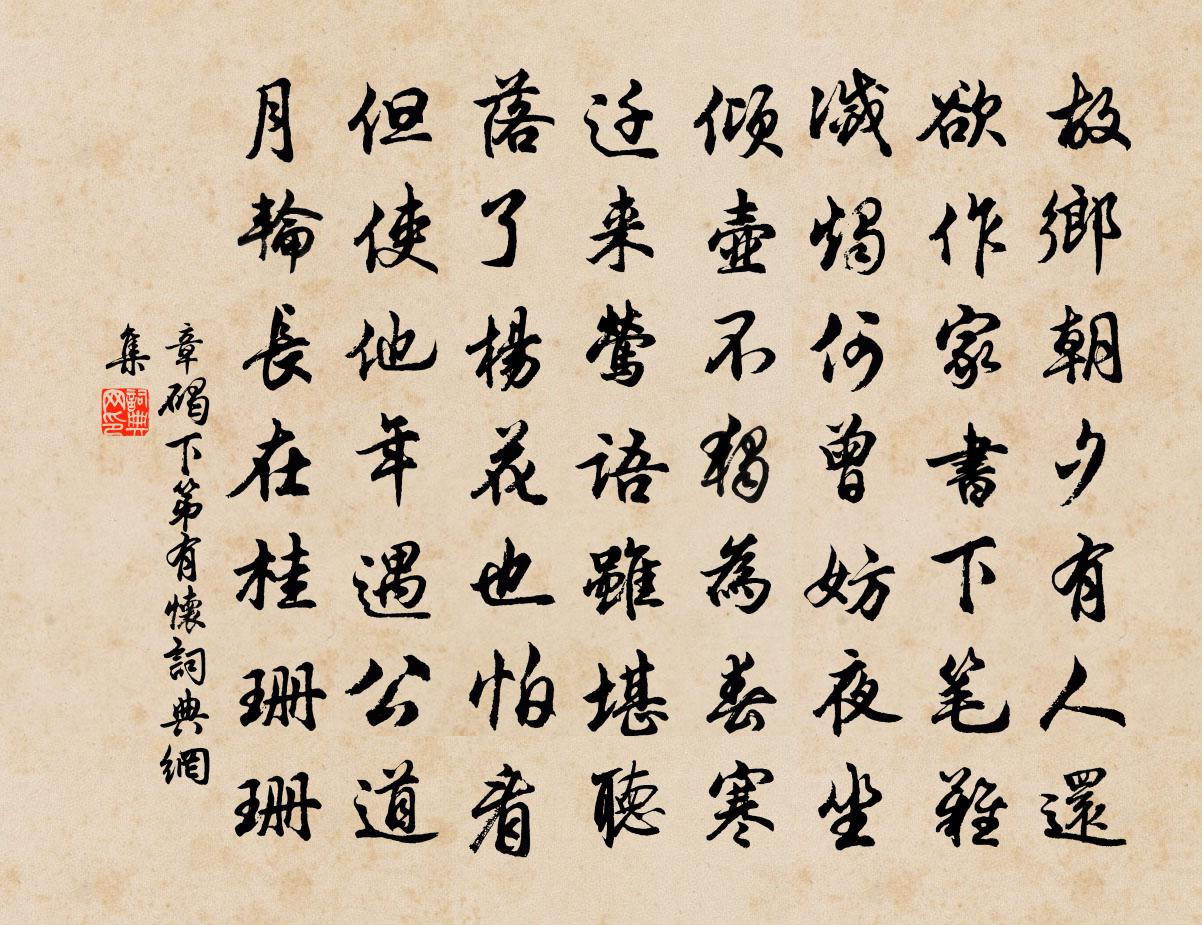 故鄉朝夕有人還
欲作家書下笔難
滅燭何曾妨夜坐
傾壺不獨為春寒
迁来鶯語雖堪聽
落了楊花也怕看
但使他年遇公道
月輪長在桂珊珊
章碣下第有懷詞典網
集
詞典网印